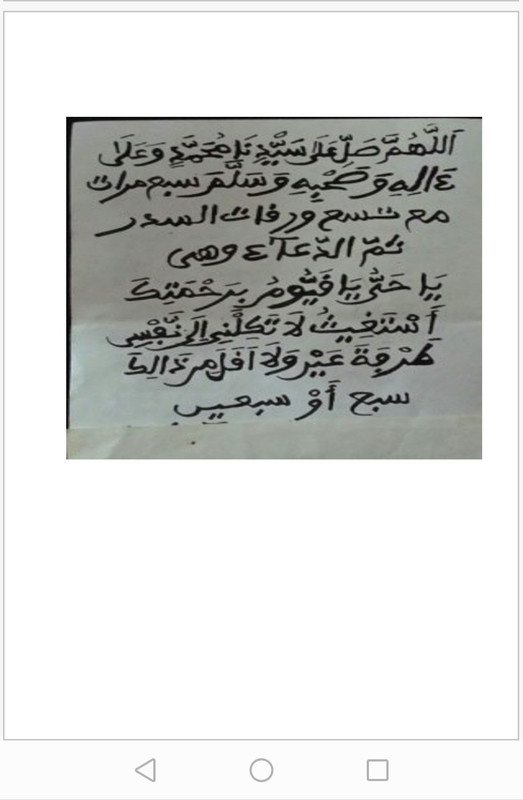 اَللَّهُمَّ صَلِّ عَلَى سَيِّدِنَا مُحَمَّدٍ وَعَلَى
ءَالِهِ وَصَحْبِهِ وَسَلَّمَ سبع مرات
مع تسع ورقات السدر
ثمّ الدّعآء وهى
يَا حَىُّ يَا قَيُّومُ بِرَحْمَتِكَ
أَسْتَغِيثُ لَا تَكِلْنِى إِلَى نَفْسِى
طَرْفَةَ عَيْنٍ وَلَا أَقَلَّ مِن ذَالِكَ
سبع أَوْ سبعين